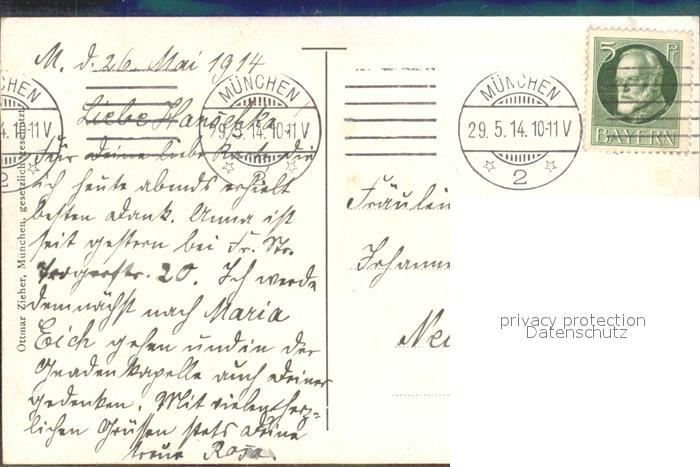 M. d. 26. Mai 1914
Liebe Hannchka!
Für Deine liebe Karte die
ich heute abends erhielt
besten Dank. Anna ist
seit gestern bei Fr. Str.
20. Ich werde
demnächst nach Maria
Eich gehen und in der
Gnadenkapelle auch Deiner
gedenken. Mit vielen herz=
lichen Grüssen stets Deine
treue Rosa.
Ottmar Zieher, München, gesetzlich geschützt.
MÜNCHEN
29.5.14.10-11V
MÜNCHEN
29.5.14.10-11V
2
5 Pf
BAYERN
Fräulein
Johanne
Neu
privacy protection
Datenschutz